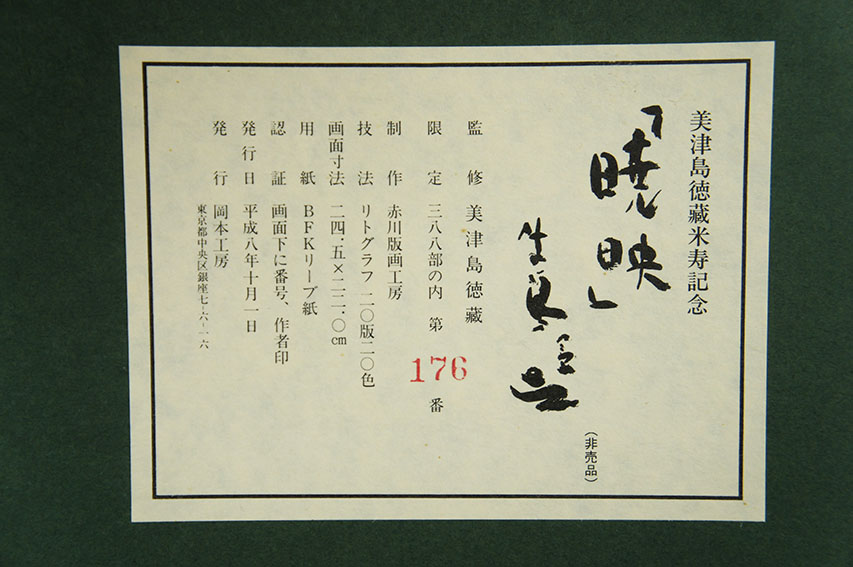 美津島徳藏米寿記念
「暁映」
（非売品）
監修 美津島徳藏
限定 三八八部の内 第 176 番
制作 赤川版画工房
技法 リトグラフ 二〇版二〇色
画面寸法 二四・五×二二・〇cm
用紙 BFKリーブ紙
認証 画面下に番号、作者印
発行日 平成八年十月一日
発行 岡本工房
東京都中央区銀座七-六-一六